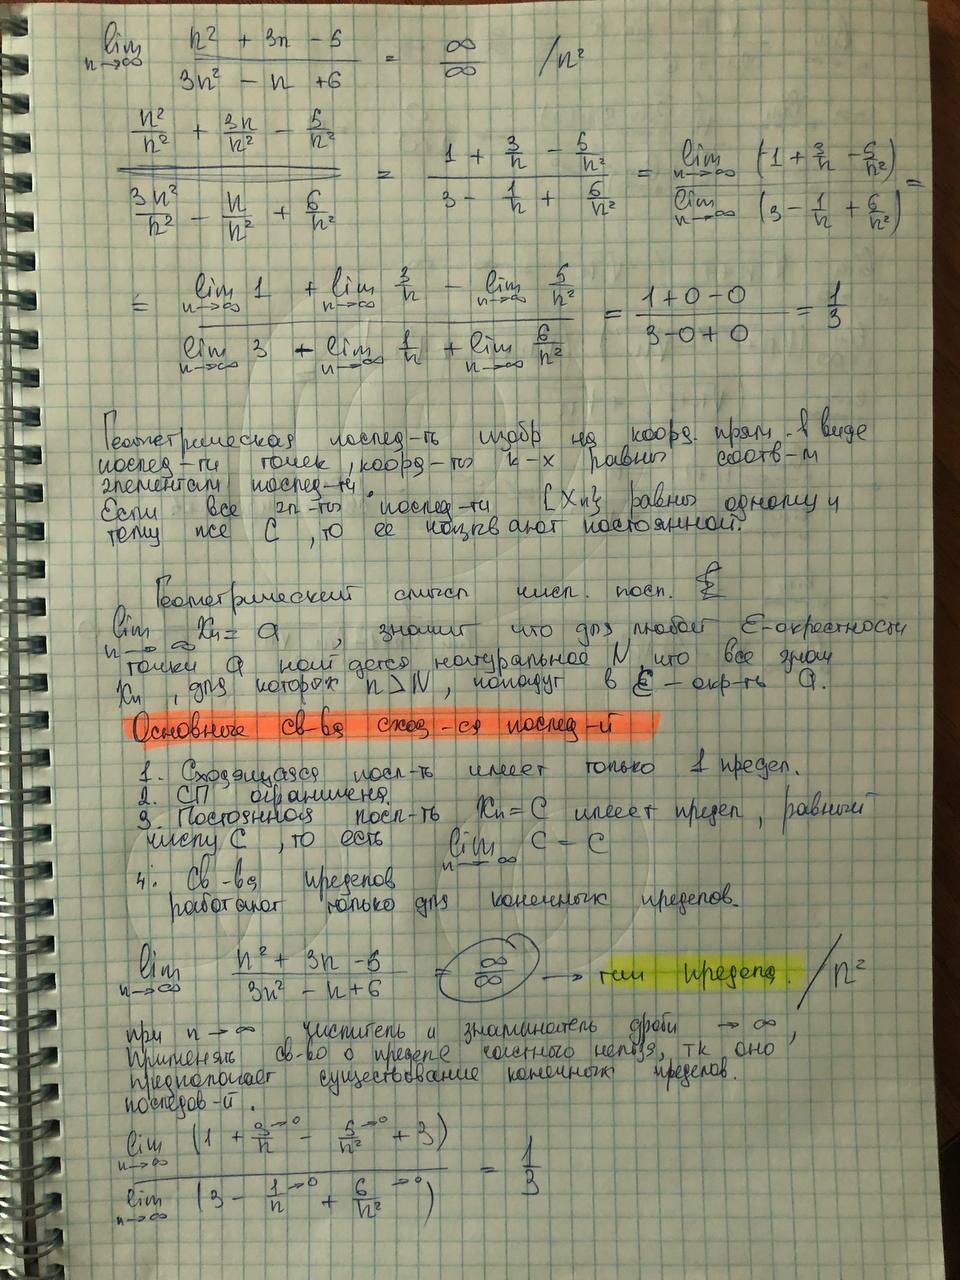 lim n→∞ (n² + 3n - 5)/(3n² - n + 6) = ∞/∞ /n²
(n²/n² + 3n/n² - 5/n²)/(3n²/n² - n/n² + 6/n²) = (1 + 3/n - 5/n²)/(3 - 1/n + 6/n²) = lim n→∞ (1 + 3/n - 5/n²)/lim n→∞ (3 - 1/n + 6/n²) =
= (lim n→∞ 1 + lim n→∞ 3/n - lim n→∞ 5/n²)/(lim n→∞ 3 - lim n→∞ 1/n + lim n→∞ 6/n²) = (1+0-0)/(3-0+0) = 1/3
Геометрическая послед-ть изобр на коорд. прям. в виде
послед-ти точек, коорд-ты к-х равны соотв-м
элементам послед-ти.
Если все эл-ты послед-ти {Xn} равны одному и
тому же C, то ее называют постоянной.
Геометрический смысл числ. посл.
lim n→∞ Xn = a, значит что для любой ε-окрестности
точки a найдется натуральное N, что все знач
Xn, для которых n>N, попадут в ε-окр-ть a.
Основные св-ва сход-ся послед-й
1. Сходящаяся посл-ть имеет только 1 предел.
2. СП ограничена.
3. Постоянная посл-ть Xn = C имеет предел, равный
числу C, то есть lim n→∞ C = C
4. Св-ва пределов
работают только для конечных пределов.
lim n→∞ (n² + 3n - 5)/(3n² - n + 6) = ∞/∞ → тип предела. /n²
при n→∞ числитель и знаминатель дроби → ∞,
Применять св-во о пределе частного нельзя, тк оно
предпологает существование конечных пределов.
последов-й.
lim n→∞ (1 + 3/n→0 - 5/n²→0 + 3)/lim n→∞ (3 - 1/n→0 + 6/n²→0) = 1/3